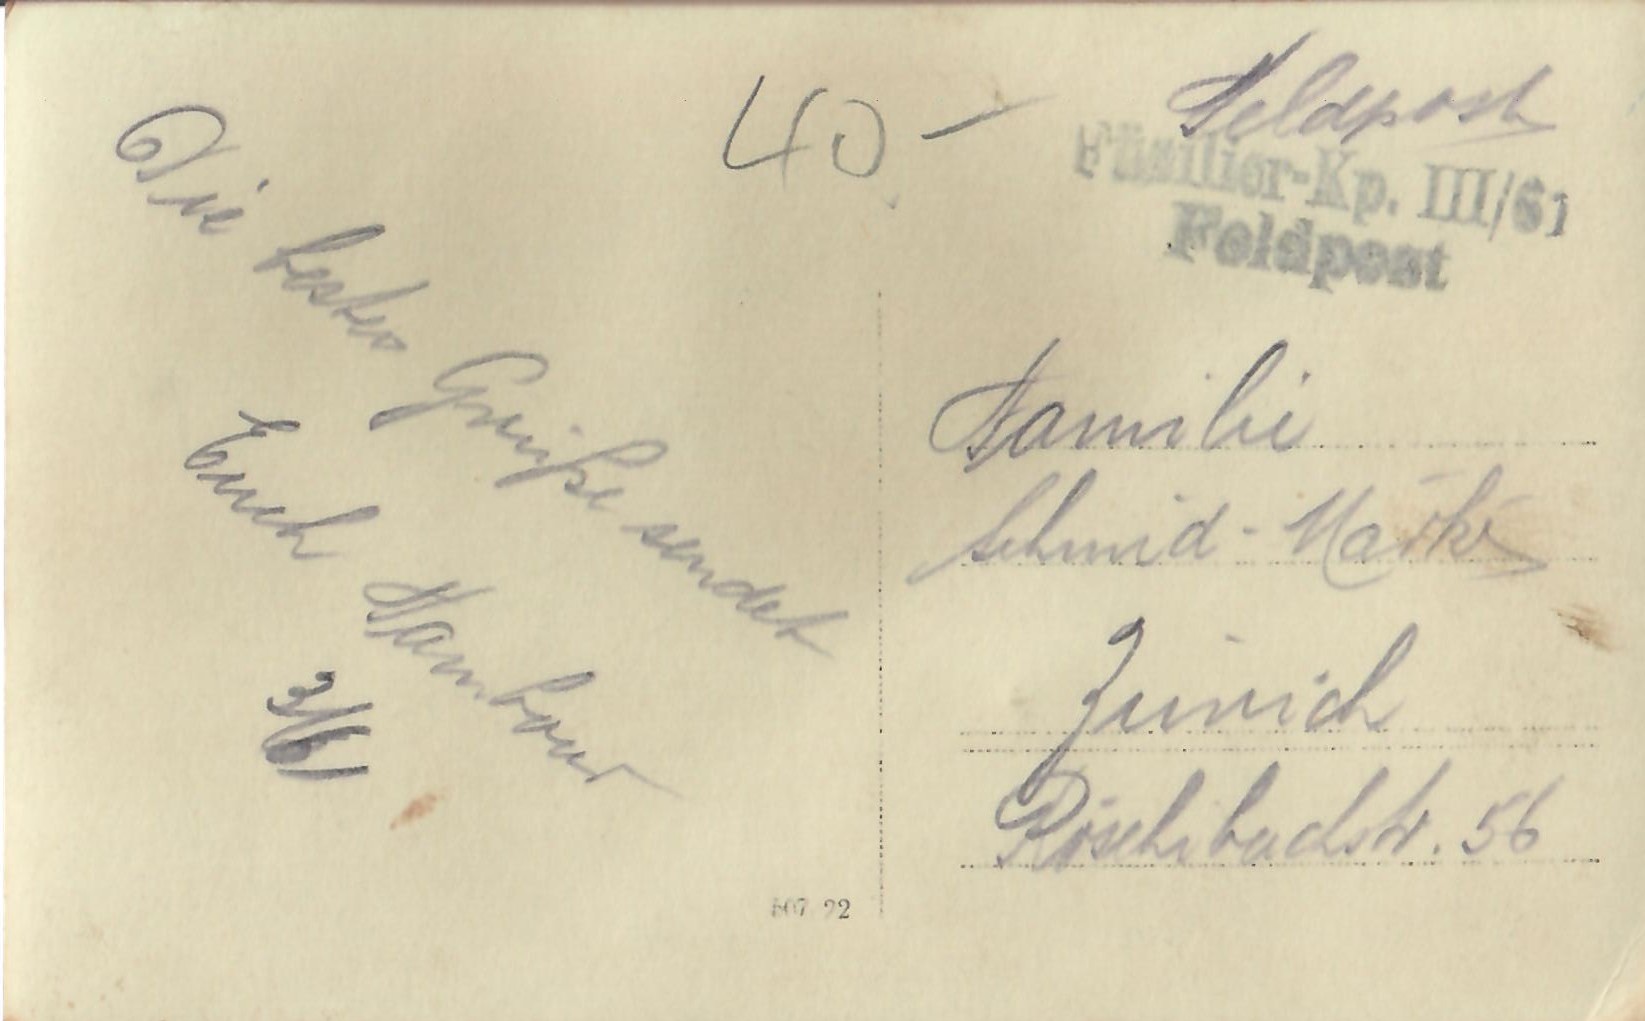 40.-
Feldpost
Füsilier-Kp. III/61
Feldpost
Die besten Grüße sendet
Euch Tambour
3/61
Familie
Schmid-
Zürich
Röschibachstr. 56